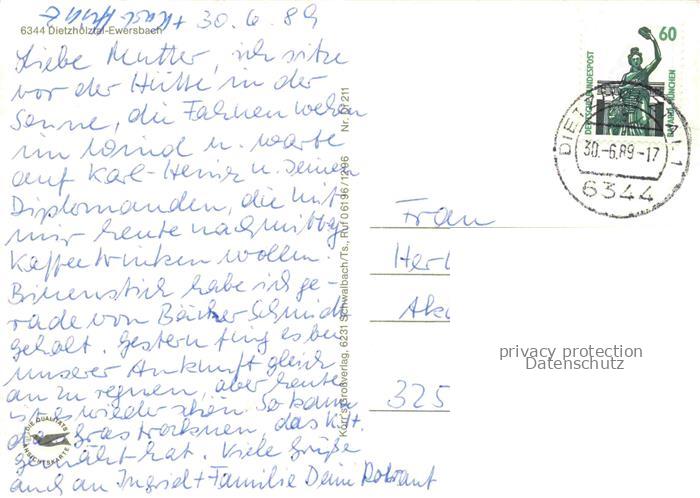 + Karl-Heinz + 30.6.89
6344 Dietzhölztal-Ewersbach
Liebe Mutter, ich sitze
vor der Hütte in der
Sonne, die Fahnen wehen
im Wind u. warte
auf Karl-Heinz u. seinen
Diplomanden, die mit
mir heute nachmittag
Kaffeetrinken wollen.
Bienenstich habe ich ge-
rade von Bäcker Schmidt
geholt. Gestern fing es bei
unserer Ankunft gleich
an zu regnen, aber heute
ist es wieder schön. So kann
das Gras trocknen, das K.H.
gemäht hat. Viele Grüße
auch an Ingrid + Familie Deine
DIE QUALITÄTS
ANSICHTSKARTE
Korr's Großverlag, 6231 Schwalbach/Ts., Ruf 06196/1296 Nr. D1211
60
DEUTSCHE BUNDESPOST
BAVARIA MÜNCHEN
30.-6.89-17
6344
Frau
325
privacy protection
Datenschutz